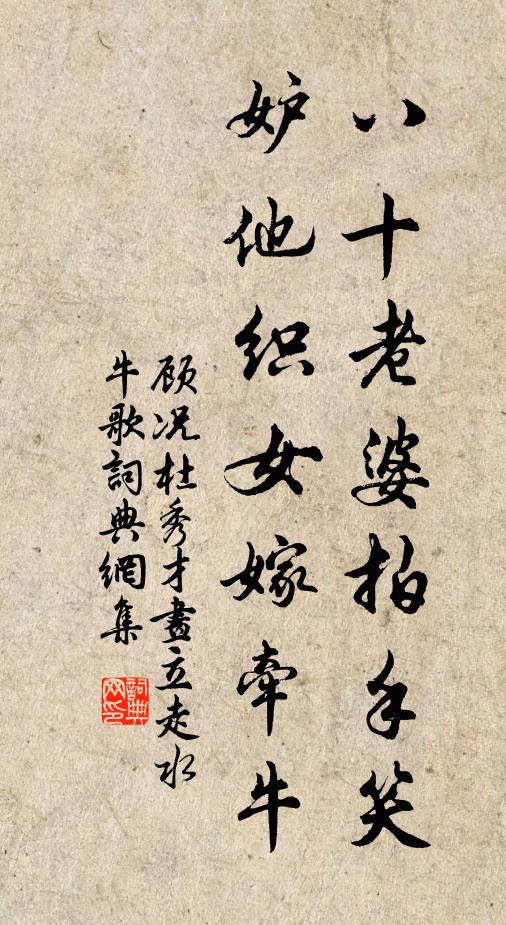 八十老婆拍手笑
妒他织女嫁牵牛
顾况杜秀才畫立走水
牛歌詞典網集
詞典网印